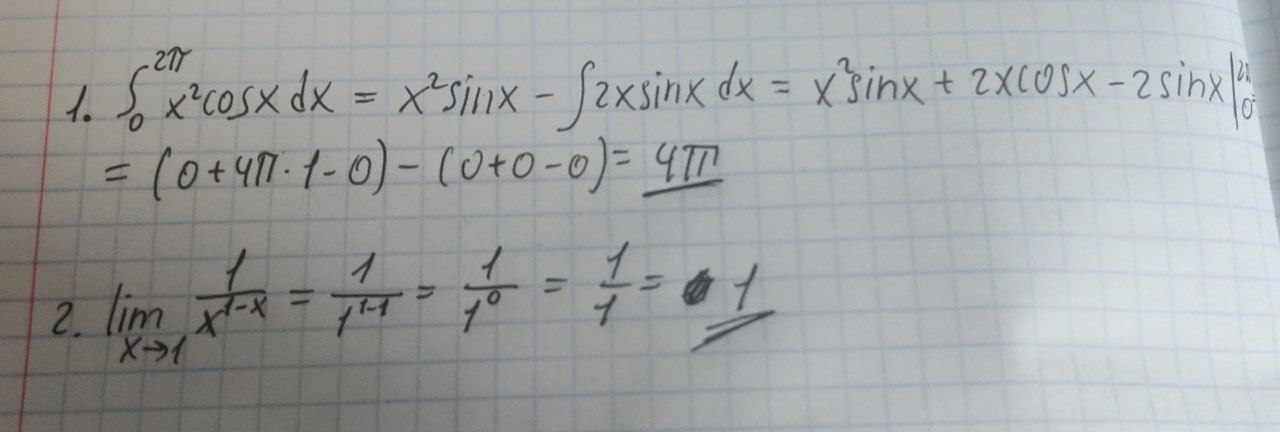 1. ∫₀^{2π} x²cosx dx = x²sinx - ∫2xsinx dx = x²sinx + 2xcosx - 2sinx |₀^{2π}
= (0+4π·1-0)-(0+0-0)= 4π
2. lim_{x→1} 1/x^{1-x} = 1/1^{1-1} = 1/1⁰ = 1/1 = 1